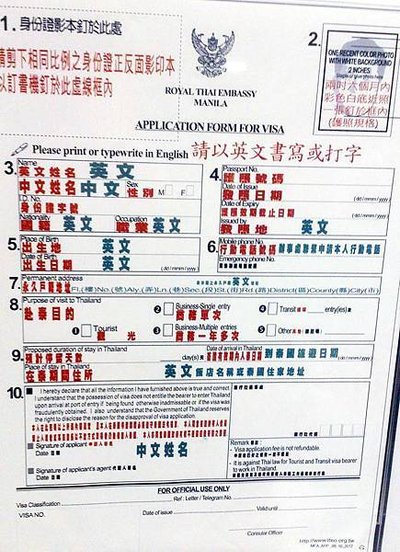 1. 身份證影本釘於此處
請剪下相同比例之身份證正反面影印本
以訂書機釘於此虛線框內
ROYAL THAI EMBASSY
MANILA
2.
ONE RECENT COLOR PHOTO
WITH WHITE BACKGROUND
2 INCHES
兩吋六個月內
彩色白底近照
(護照規格)
APPLICATION FORM FOR VISA
Please print or typewrite in English 請以英文書寫或打字
3. Name
英文姓名 英文
中文姓名 中文 Sex 性別 M F
I.D. No.
身份證字號
Nationality Occupation
國籍 英文 職業 英文
4. Passport No.
護照號碼
Date of Issue
發照日期
(dd / mm / yy)
Date of Expiry
護照效期截止日期
Issued by
發照地 英文
5. Place of Birth
出生地 英文
Date of Birth
出生日期 英文 (dd / mm / yy)
6. Mobile phone No.
行動電話號碼
Emergency phone No.
7. Permanent address
永久戶籍地址 Fl.(樓)No.(號)Aly.(弄)Ln.(巷)Sec.(段)St.(街)Rd.(路)District(區)County(縣)City(市)
8. Purpose of visit to Thailand
赴泰目的
1 Tourist
觀光
2 Business-Single entry
商務單次
3 Business-Multiple entries
商務一年多次
4 Transit entry(ies)
5 Other
9. Proposed duration of stay in Thailand
預計停留天數 day(s)
Date of arrival in Thailand
到泰國旅遊日期
(dd / mm / yy)
Place of stay in Thailand
在泰期間住所 英文 飯店名稱或泰國住家地址
10. I hereby declare that all the information I have furnished above is true and correct
I understand that the possession of visa does not entitle the bearer to enter Thailand
upon arrival at port of entry if being found otherwise inadmissible or if the visa was
fraudulently obtained. I also understand that the Government of Thailand reserves
the right to disclose the reason for the disapproval of visa application.
Signature of applicant
Date 日期
中文姓名
Signature of applicant's agent
Date 日期
Remark
- Visa application fee is not refundable.
- It is against Thai law for Tourist and Transit visa bearer
to work in Thailand
FOR OFFICIAL USE ONLY
Ref.: Letter / Telegram No.
Visa Classification
VISA NO. Date of issue Valid until
Consular Officer